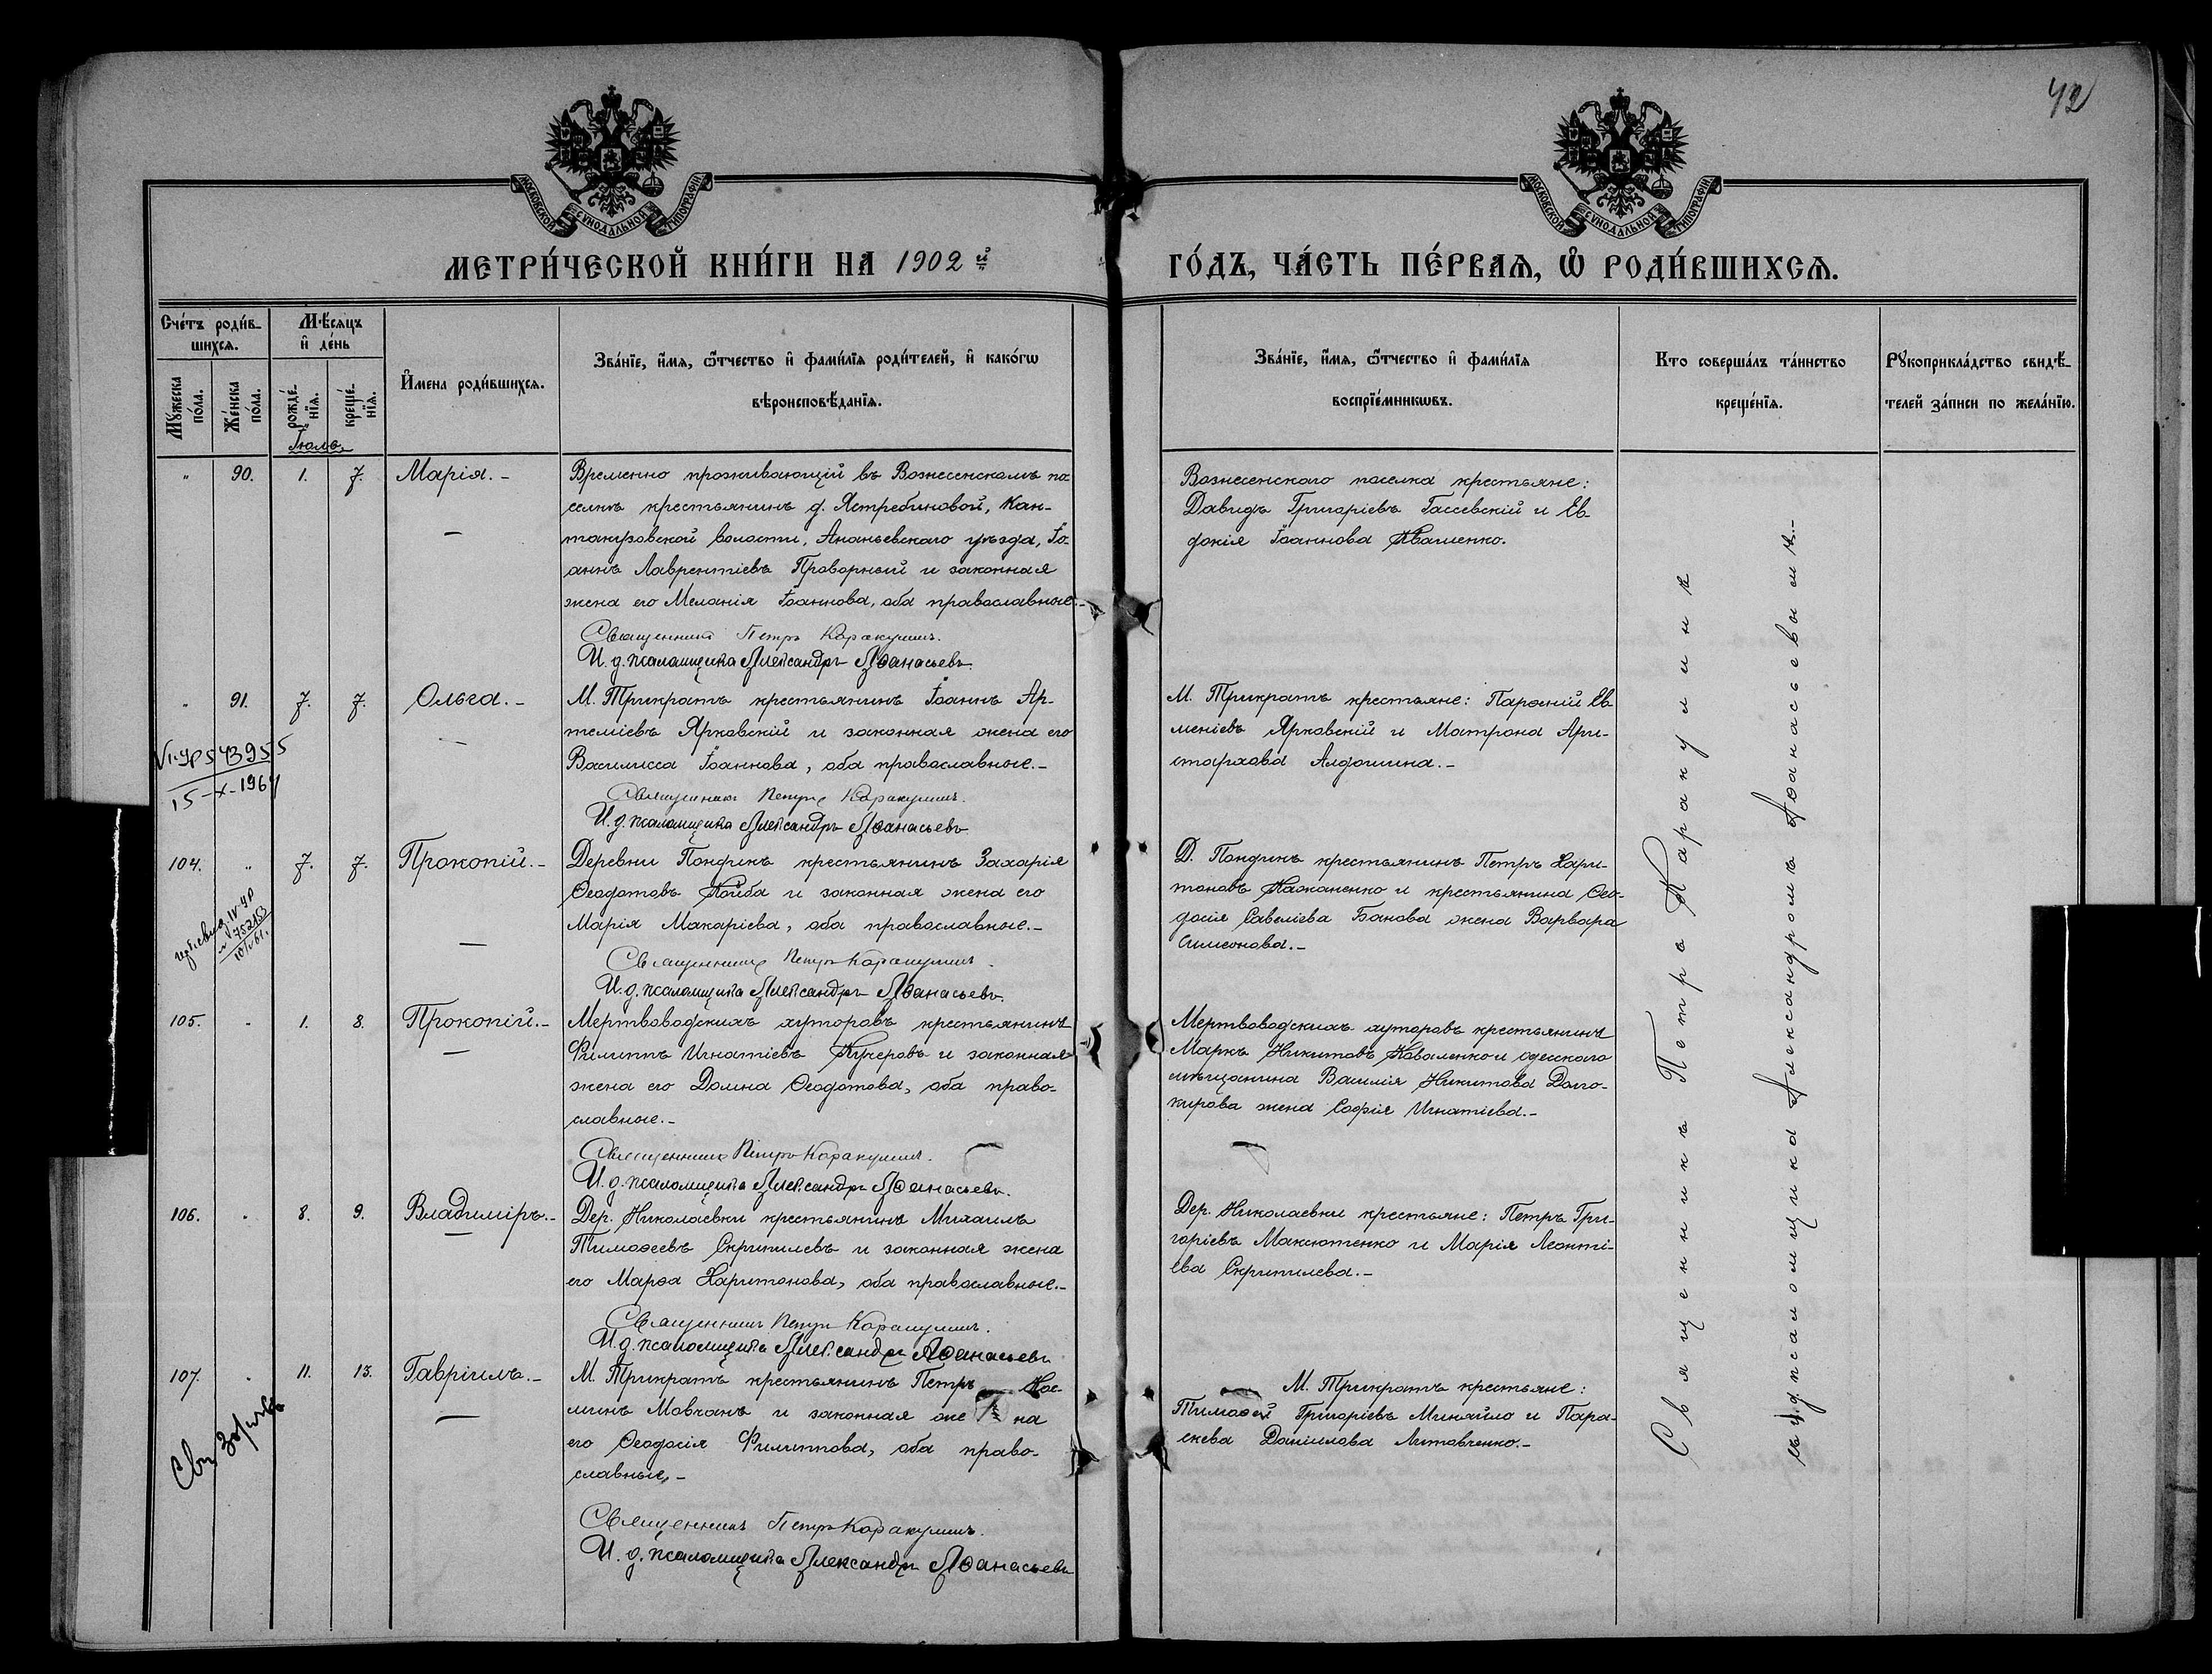 42
МОСКОВСКОЙ СѴНОДАЛЬНОЙ ТИПОГРАФІИ
МОСКОВСКОЙ СѴНОДАЛЬНОЙ ТИПОГРАФІИ
МЕТРИ́ЧЕСКОЙ КНИ́ГИ НА 1902 й
ГО́ДЪ, ЧА́СТЬ ПЕ́РВАѦ, Ѽ РОДИ́ВШИХСѦ.
Сче́тъ роди́в-
шихсѧ.
Мѣ́сѧцъ
и҆ де́нь
Мꙋ́жеска
по́ла.
Же́нска
по́ла.
рожде́-
нїѧ.
креще́-
нїѧ.
И҆мена роди́вшихсѧ.
Зва́нїе, и҆́мѧ, ѻ҆́тчество и҆ фами́лїѧ роди́телей, и҆ како́гѡ
вѣроисповѣ́данїѧ.
Зва́нїе, и҆́мѧ, ѻ҆́тчество и҆ фами́лїѧ
воспрїе́мникѡвъ.
Кто соверша́лъ та́инство
креще́нїѧ.
Рꙋкоприкла́дство свидѣ́-
телей за́писи по жела́нїю.
Іюль.
" 90. 1. 7. Марія.-
Временно проживающій въ Вознесенскомъ по-
селкѣ крестьянинъ д. Ястребиновой, Кан-
такузовской волости, Ананьевскаго уѣзда, Іо-
аннъ Лаврентіевъ Проворный и законная
жена его Меланія Іоаннова, оба православные.-
Священникъ Петръ Каракулинъ.
И. д. псаломщика Александръ Аѳанасьевъ.
Вознесенскаго поселка крестьяне:
Давидъ Григоріевъ Гассевскій и Ев-
докія Іоаннова Квашенко.
" 91. 7. 7. Ольга.-
М. Трикратъ крестьянинъ Іоаннъ Ар-
теміевъ Ярковскій и законная жена его
Василисса Іоаннова, оба православные.-
Священникъ Петръ Каракулинъ.
И. д. псаломщика Александръ Аѳанасьевъ
М. Трикратъ крестьяне: Парѳеній Ев-
меніевъ Ярковскій и Матрона Ари-
стархова Алдошина.-
15-X-1964
104. " 7. 7. Прокопій.-
Деревни Пондикъ крестьянинъ Захарія
Ѳеодотовъ Койба и законная жена его
Марія Макаріева, оба православные.-
Священникъ Петръ Каракулинъ.
И. д. псаломщика Александръ Аѳанасьевъ.
Д. Пондикъ крестьянинъ Петръ Хари-
тоновъ Кажаненко и крестьянина Ѳео-
досія Савеліева Банова жена Варвара
Симеонова.-
105. " 1. 8. Прокопій.-
Мертвоводскихъ хуторовъ крестьянинъ
Филиппъ Игнатіевъ Кучеровъ и законная
жена его Домна Ѳеодотова, оба право-
славные.-
Священникъ Петръ Каракулинъ.
И. д. псаломщика Александръ Аѳанасьевъ.
Мертвоводскихъ хуторовъ крестьянинъ
Маркъ Никитовъ Коваленко и одесскаго
мѣщанина Василія Никитова Долго-
кирова жена Софія Игнатіева.-
106. " 8. 9. Владиміръ.-
Дер. Николаевки крестьянинъ Михаилъ
Тимоѳеевъ Скрипилевъ и законная жена
его Марѳа Харитонова, оба православные.-
Священникъ Петръ Каракулинъ.
И. д. псаломщика Александръ Аѳанасьевъ
Дер. Николаевки крестьяне: Петръ Гри-
горіевъ Максютенко и Марія Леонті-
ева Скрипилева.-
107. " 11. 13. Гавріилъ.-
М. Трикратъ крестьянинъ Петръ Кос-
минъ Мовчанъ и законная же на
его Ѳеодосія Филиппова, оба право-
славные.-
Священникъ Петръ Каракулинъ.
И. д. псаломщика Александръ Аѳанасьевъ
М. Трикратъ крестьяне:
Тимоѳей Григоріевъ Михайло и Пара-
скева Даніилова Литовченко.-
Священникъ Петръ Каракулинъ
съ и. д. псаломщика Александромъ Аѳанасьевымъ.-